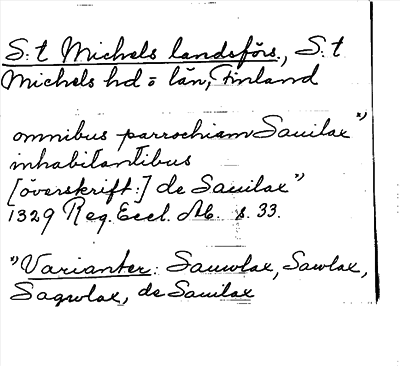 S:t Michels landsförs., S:t
Michels hd o län, Finland
omnibus parrochiam Sauilax¹⁾
inhabitantibus
[överskrift:] de Sauilax¹⁾
1329 Reg. Eccl. Ab. s. 33.
¹⁾Varianter: Sauwlax, Sawlax,
Sagwlax, de Sauilax